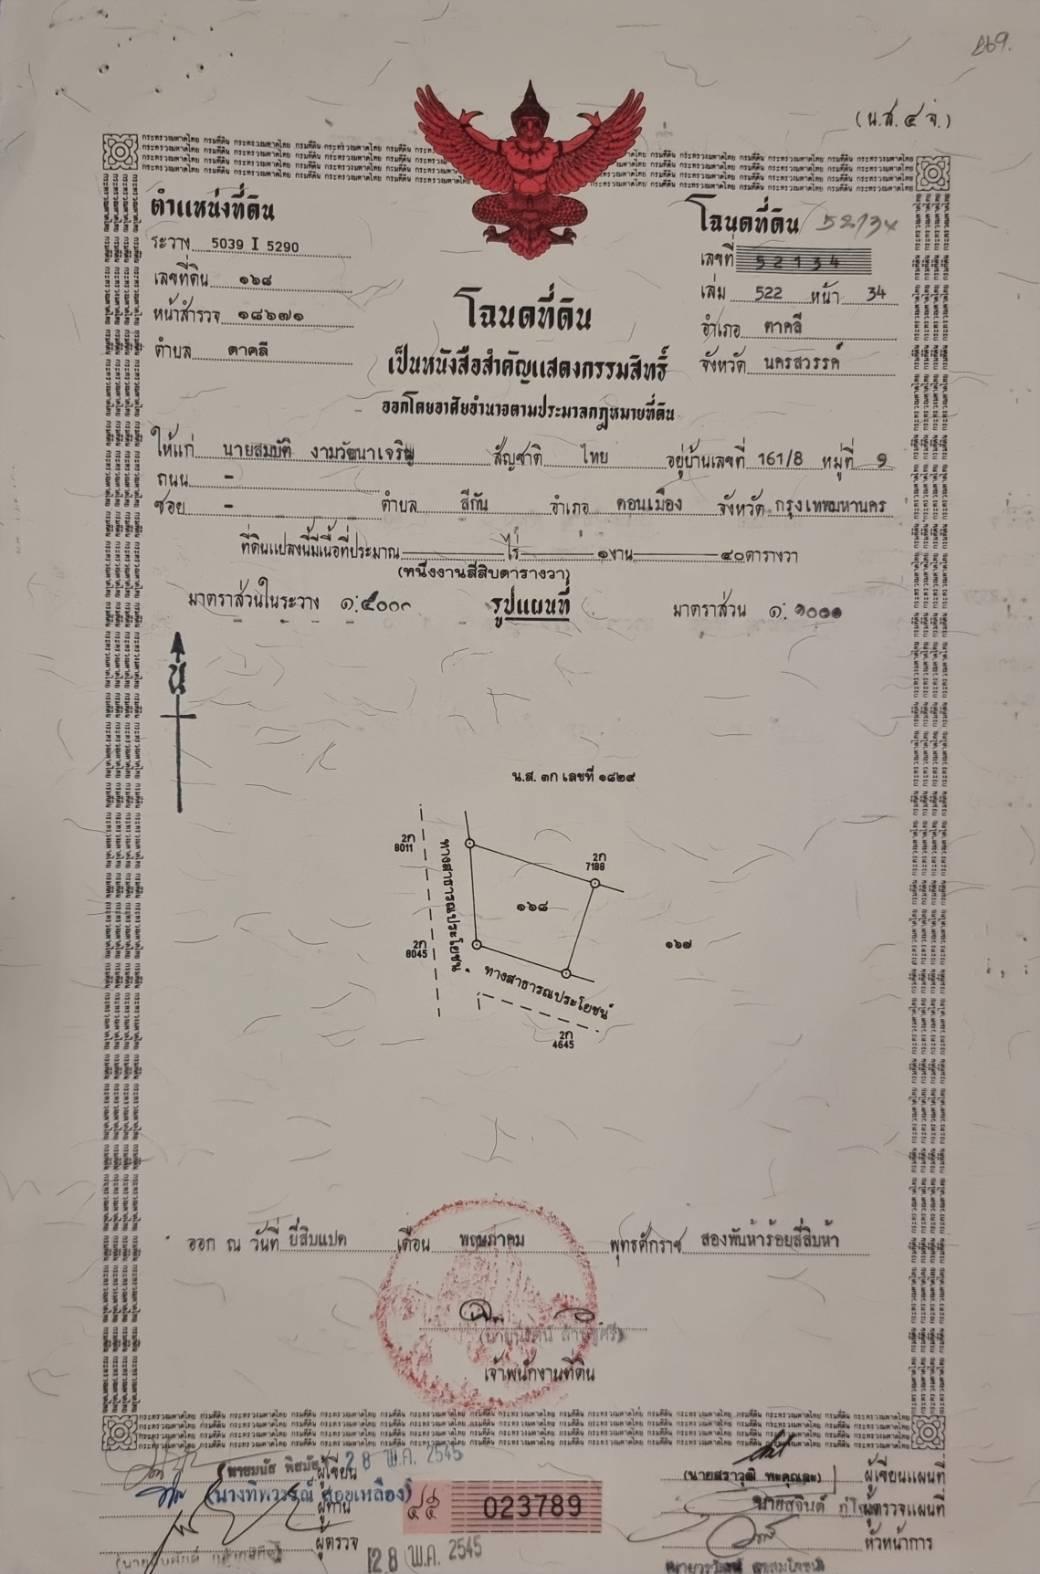 ๒69.
(น.ส. ๔ จ.)
ตำแหน่งที่ดิน
ระวาง 5039 I 5290
เลขที่ดิน ๑๖๘
หน้าสำรวจ ๑๘๖๗๑
ตำบล ตาคลี
โฉนดที่ดิน 52134
เลขที่ 52134
เล่ม 522 หน้า 34
อำเภอ ตาคลี
จังหวัด นครสวรรค์
โฉนดที่ดิน
เป็นหนังสือสำคัญแสดงกรรมสิทธิ์
ออกโดยอาศัยอำนาจตามประมวลกฎหมายที่ดิน
ให้แก่ นายสมบัติ งามวัฒนาเจริญ สัญชาติ ไทย อยู่บ้านเลขที่ 161/8 หมู่ที่ 9
ถนน -
ซอย - ตำบล สีกัน อำเภอ ดอนเมือง จังหวัด กรุงเทพมหานคร
ที่ดินแปลงนี้มีเนื้อที่ประมาณ ไร่ ๑งาน ๔๐ตารางวา
(หนึ่งงานสี่สิบตารางวา)
มาตราส่วนในระวาง ๑:๕๐๐๐ รูปแผนที่ มาตราส่วน ๑:๑๐๐๐
น
น.ส. ๓ก เลขที่ ๑๘๒๙
2ก
8011
ทางสาธารณประโยชน์
2ก
7188
๑๖๘
๑๖๗
2ก
8045
ทางสาธารณประโยชน์
2ก
4645
ออก ณ วันที่ ยี่สิบแปด เดือน พฤษภาคม พุทธศักราช สองพันห้าร้อยสี่สิบห้า
เจ้าพนักงานที่ดิน
ผู้เขียน 28 พ.ค. 2545
(นางทิพวรรณ์ สอยเหลือง) ผู้ทาน
ผู้ตรวจ 28 พ.ค. 2545
023789
ผู้เขียนแผนที่
ผู้ตรวจแผนที่
หัวหน้าการ